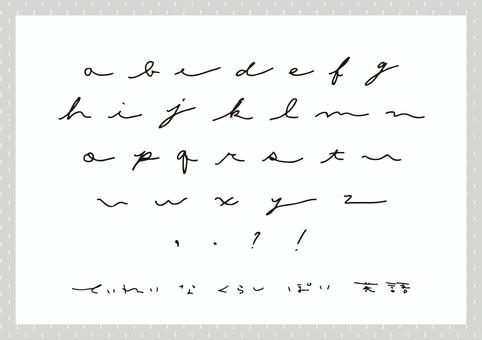 a b c d e f g
h i j k l m n
o p q r s t u
v w x y z
, . ? !
ていねい な くらし ぽい 英語